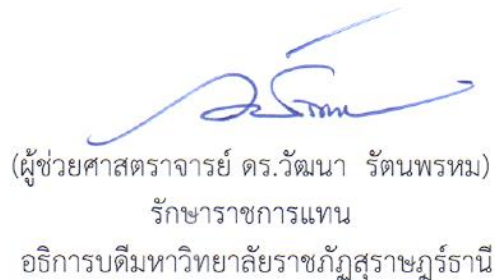 (ผู้ช่วยศาสตราจารย์ ดร.วัฒนา  รัตนพรหม)
รักษาราชการแทน
อธิการบดีมหาวิทยาลัยราชภัฏสุราษฎร์ธานี